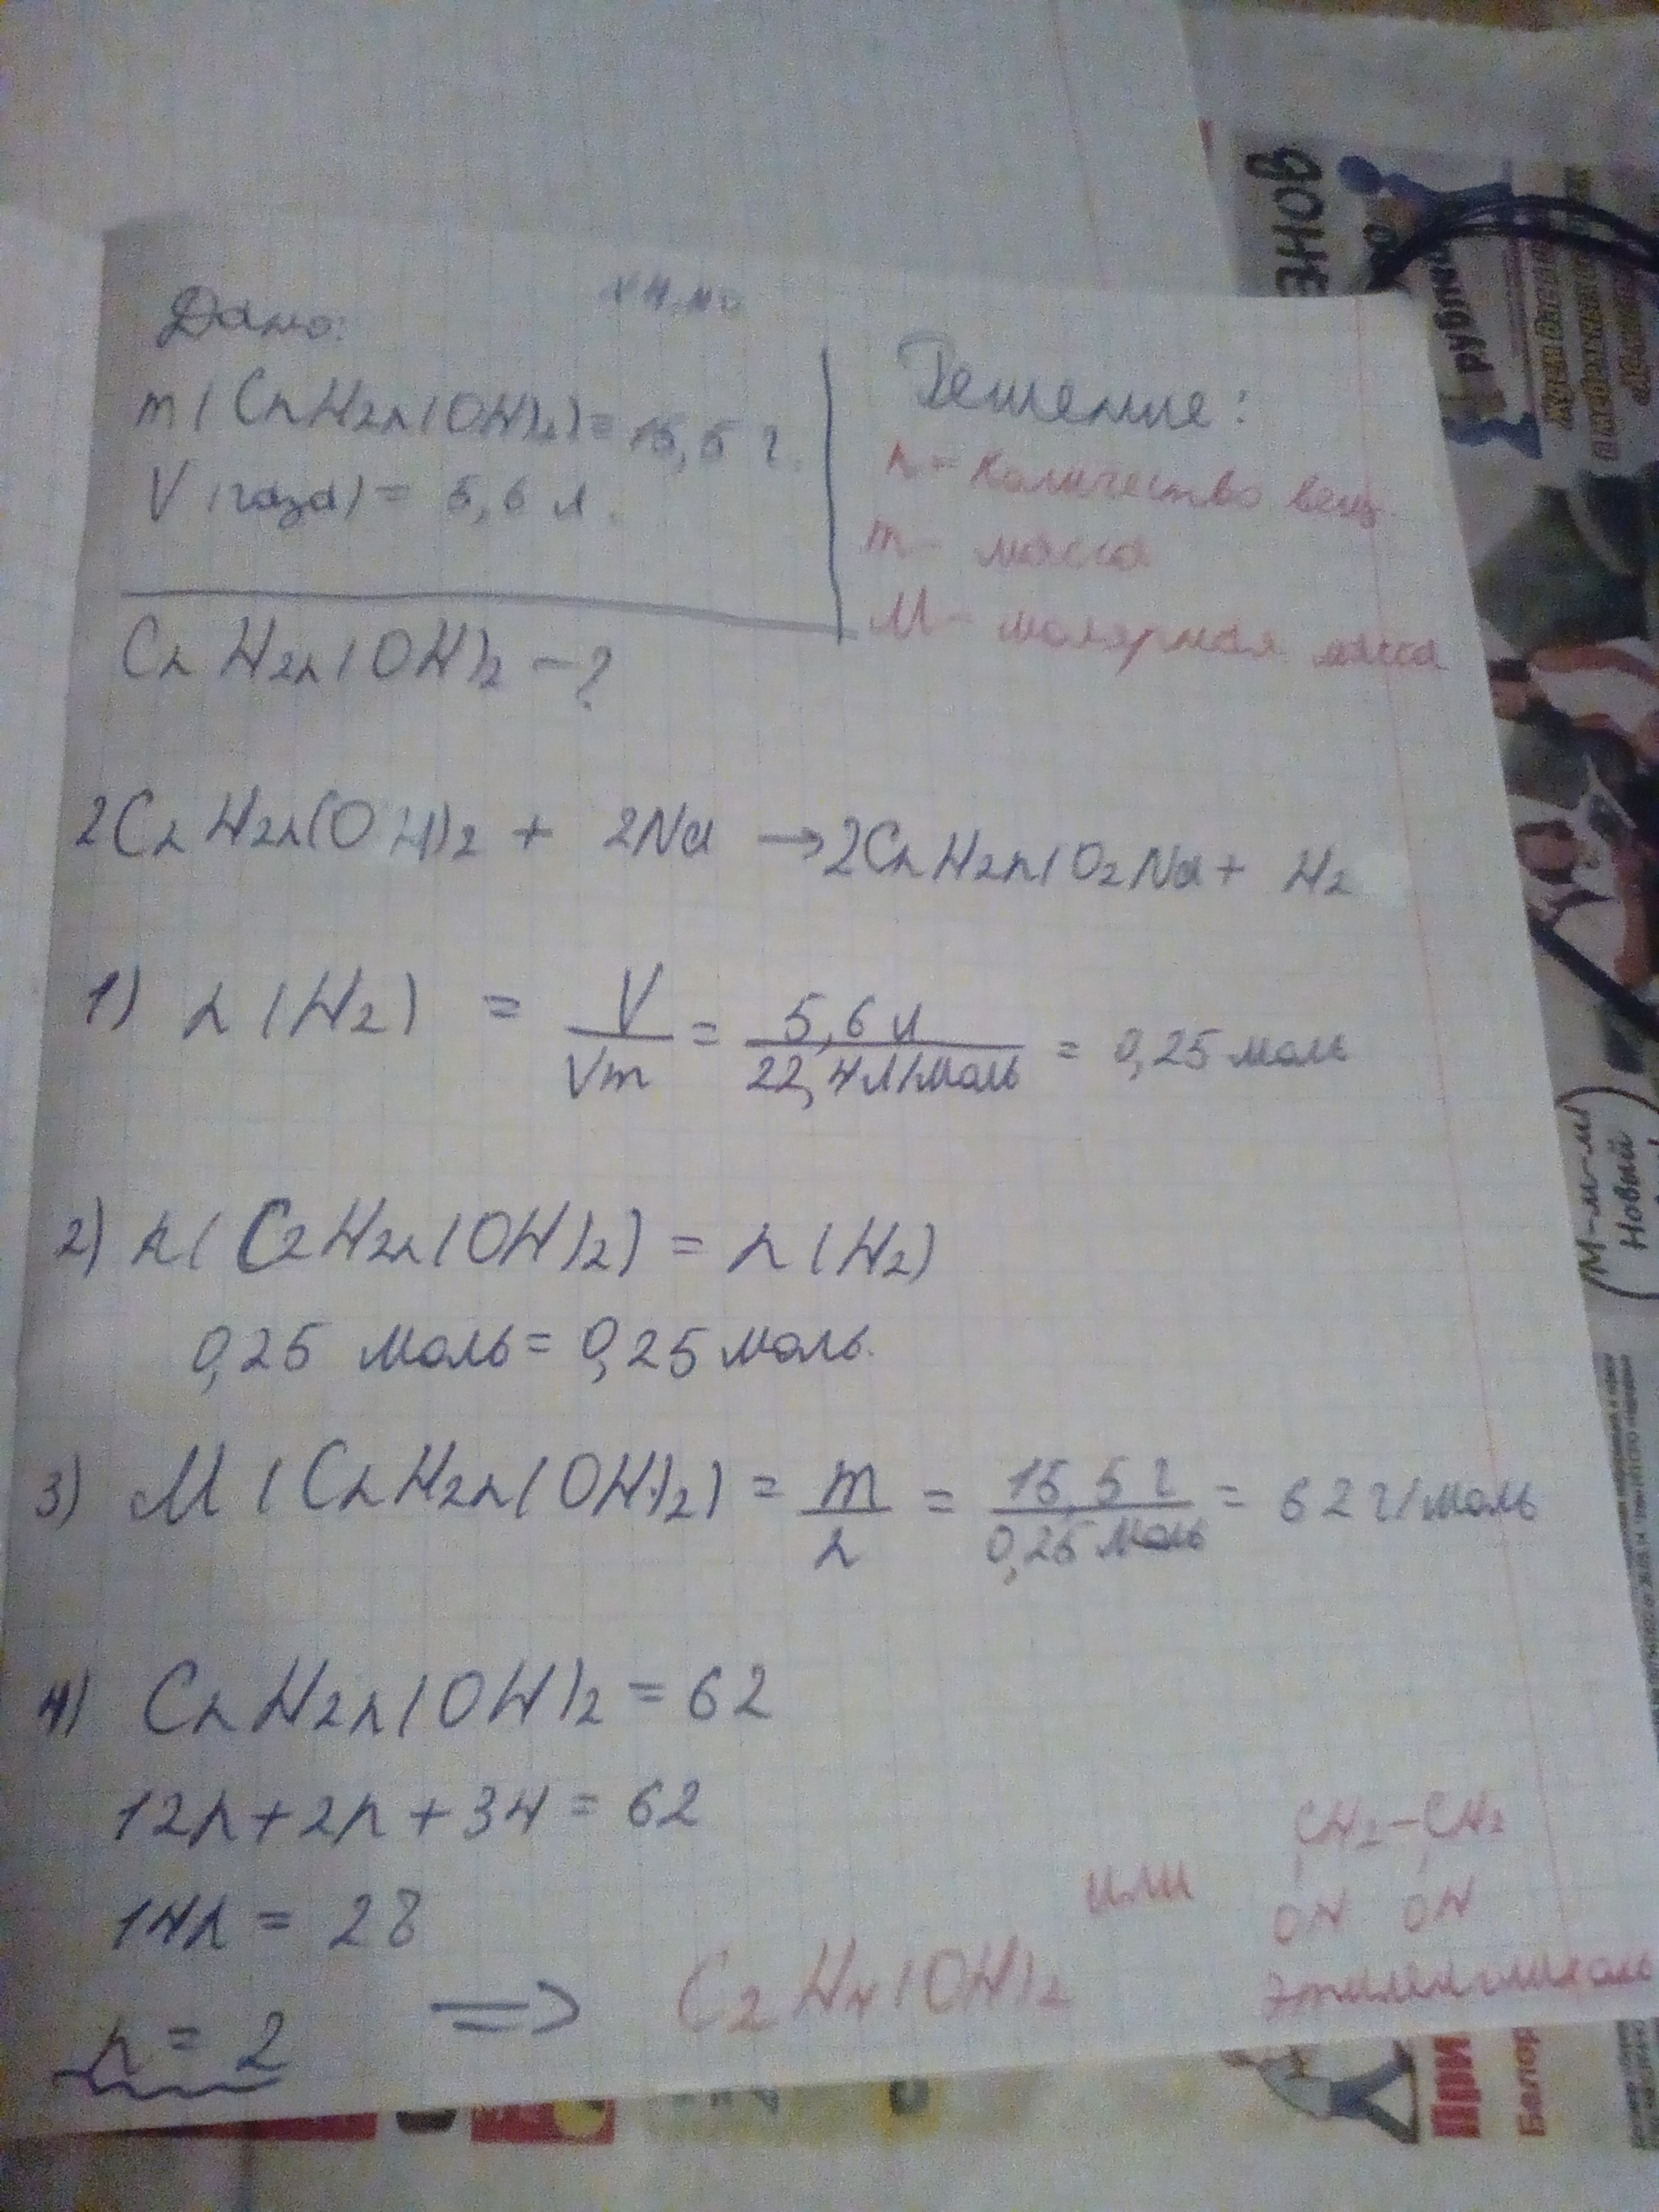 Дано:
m(CnH2n(OH)2) = 15,5 г.
V(газа) = 5,6 л.
CnH2n(OH)2 - ?
Решение:
n = количество вещ.
m - масса
M - молярная масса
2CnH2n(OH)2 + 2Na → 2CnH2n(O2Na + H2
1) n(H2) = V/Vm = 5,6 л/22,4 л/моль = 0,25 моль
2) n(C2H2n(OH)2) = n(H2)
0,25 моль = 0,25 моль.
3) M(CnH2n(OH)2) = m/n = 15,5 г/0,25 моль = 62 г/моль
4) CnH2n(OH)2 = 62
12n + 2n + 34 = 62
14n = 28
n = 2 => C2H4(OH)2 или
CH2-CH2
OH OH
этиленгликоль
ЗНОВ
рублика
(М-м-м)
Новый
При